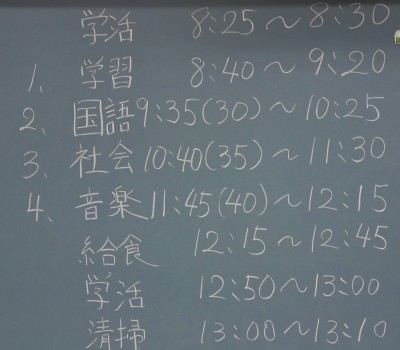 学活 8:25～8:30
1. 学習 8:40～9:20
2. 国語 9:35(30)～10:25
3. 社会 10:40(35)～11:30
4. 音楽 11:45(40)～12:15
給食 12:15～12:45
学活 12:50～13:00
清掃 13:00～13:10